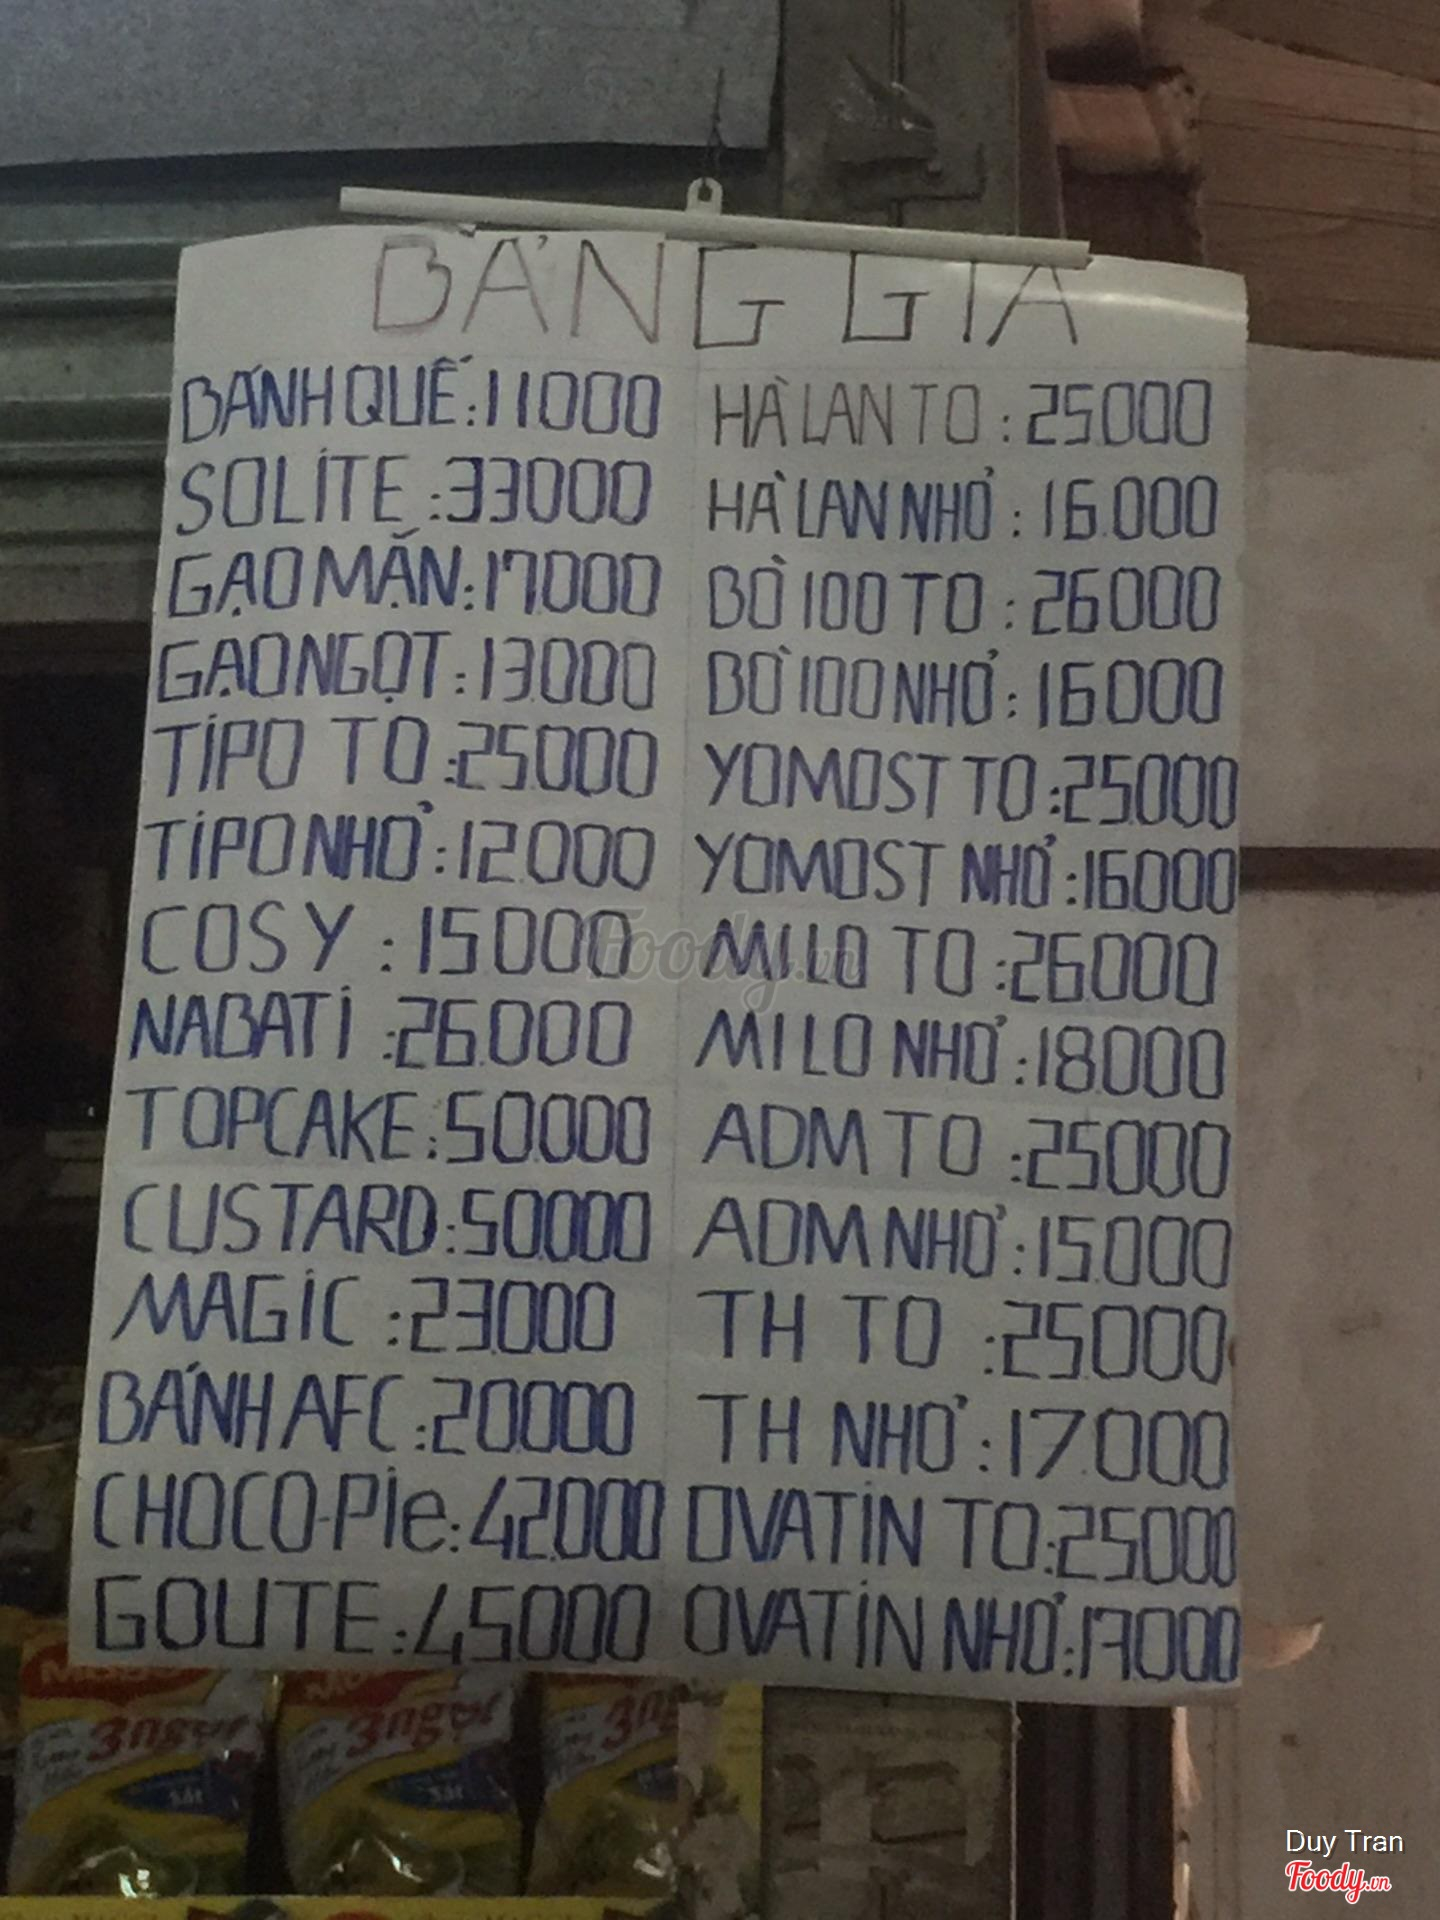 BẢNG GIÁ
BÁNH QUẾ: 11000
SOLiTE: 33000
GẠO MẶN: 17.000
GẠO NGỌT: 13.000
TiPO TO: 25.000
TiPO NHỎ: 12.000
COSY: 15000
NABATi: 26.000
TOPCAKE: 50.000
CUSTARD: 50.000
MAGiC: 23.000
BÁNH AFC: 20.000
CHOCO-Pie: 42.000
GOUTE: 45000
HÀ LAN TO: 25.000
HÀ LAN NHỎ: 16.000
BÒ 100 TO: 26000
BÒ 100 NHỎ: 16000
YOMOST TO: 25.000
YOMOST NHỎ: 16.000
MILO TO: 26.000
MILO NHỎ: 18.000
ADM TO: 25000
ADM NHỎ: 15.000
TH TO: 25.000
TH NHỎ: 17.000
OVATiN TO: 25.000
OVATiN NHỎ: 17.000
Foody.vn
3ngọt
3ngọt
Duy Tran
Foody.vn